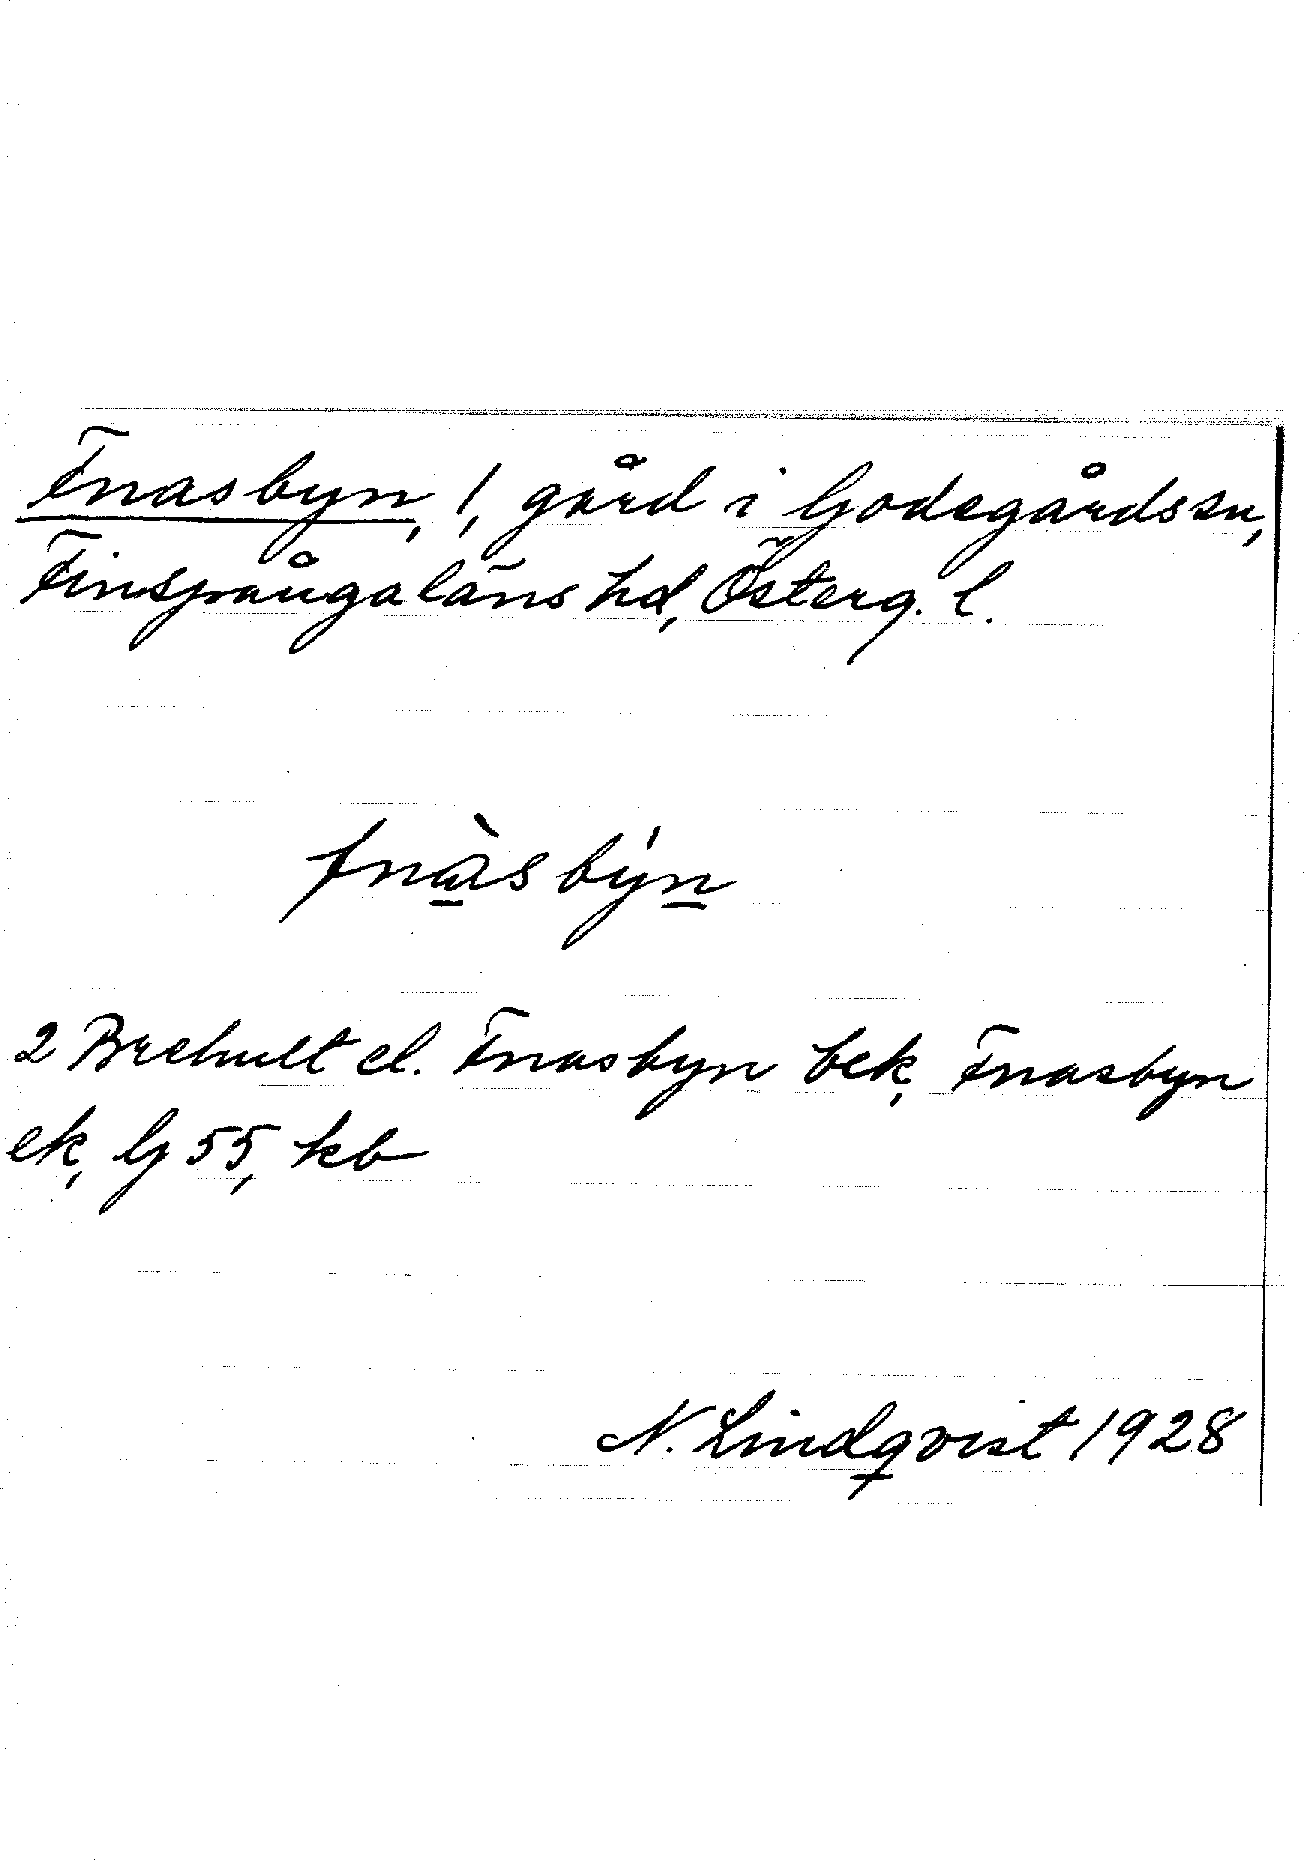 Fnasbyn, 1, gård i Godegårds sn,
Finspångaläns hd, Österg. l.
fnàsbýn
2 Brehult el. Fnasbyn bek, Fnasbyn
ek, G 55, kb
N. Lindqvist 1928